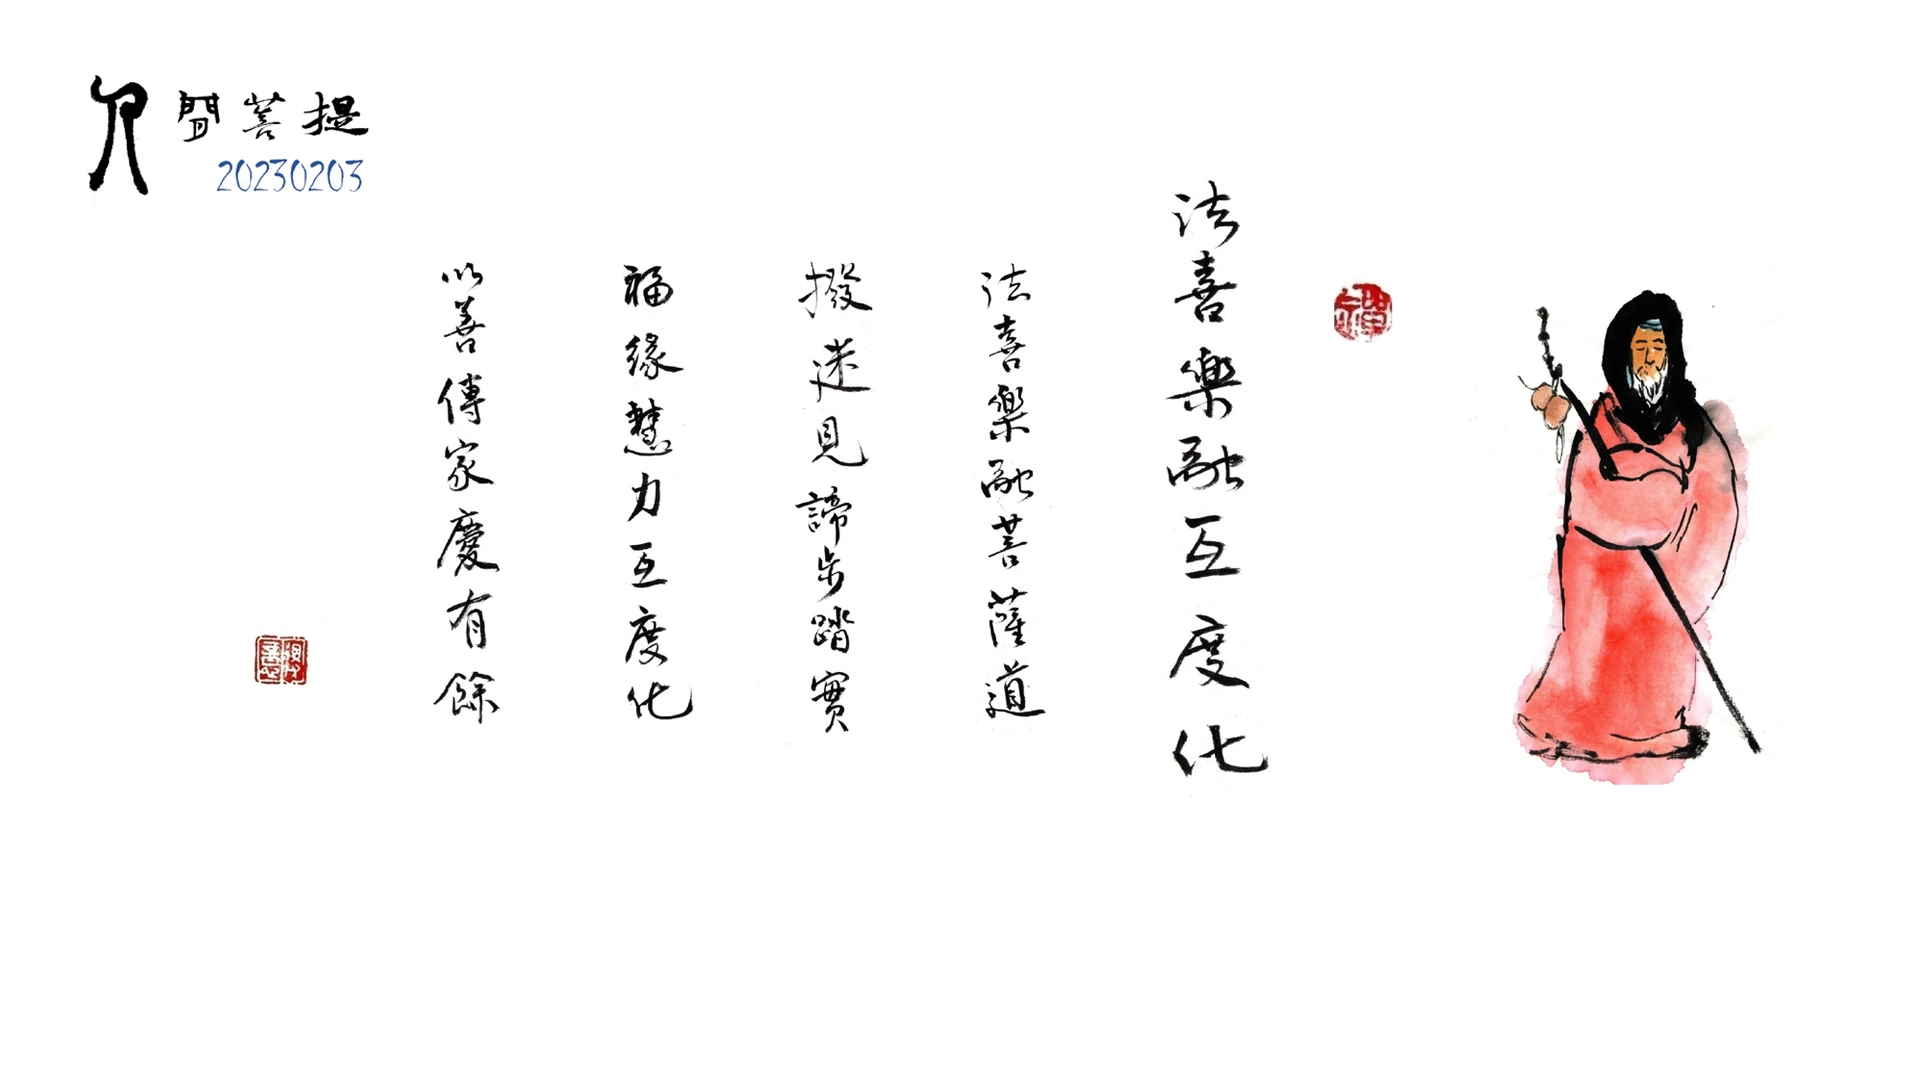 人間菩提
20230203
法喜樂融互度化
法喜樂融菩薩道
撥迷見諦步踏實
福緣慧力互度化
以善傳家慶有餘